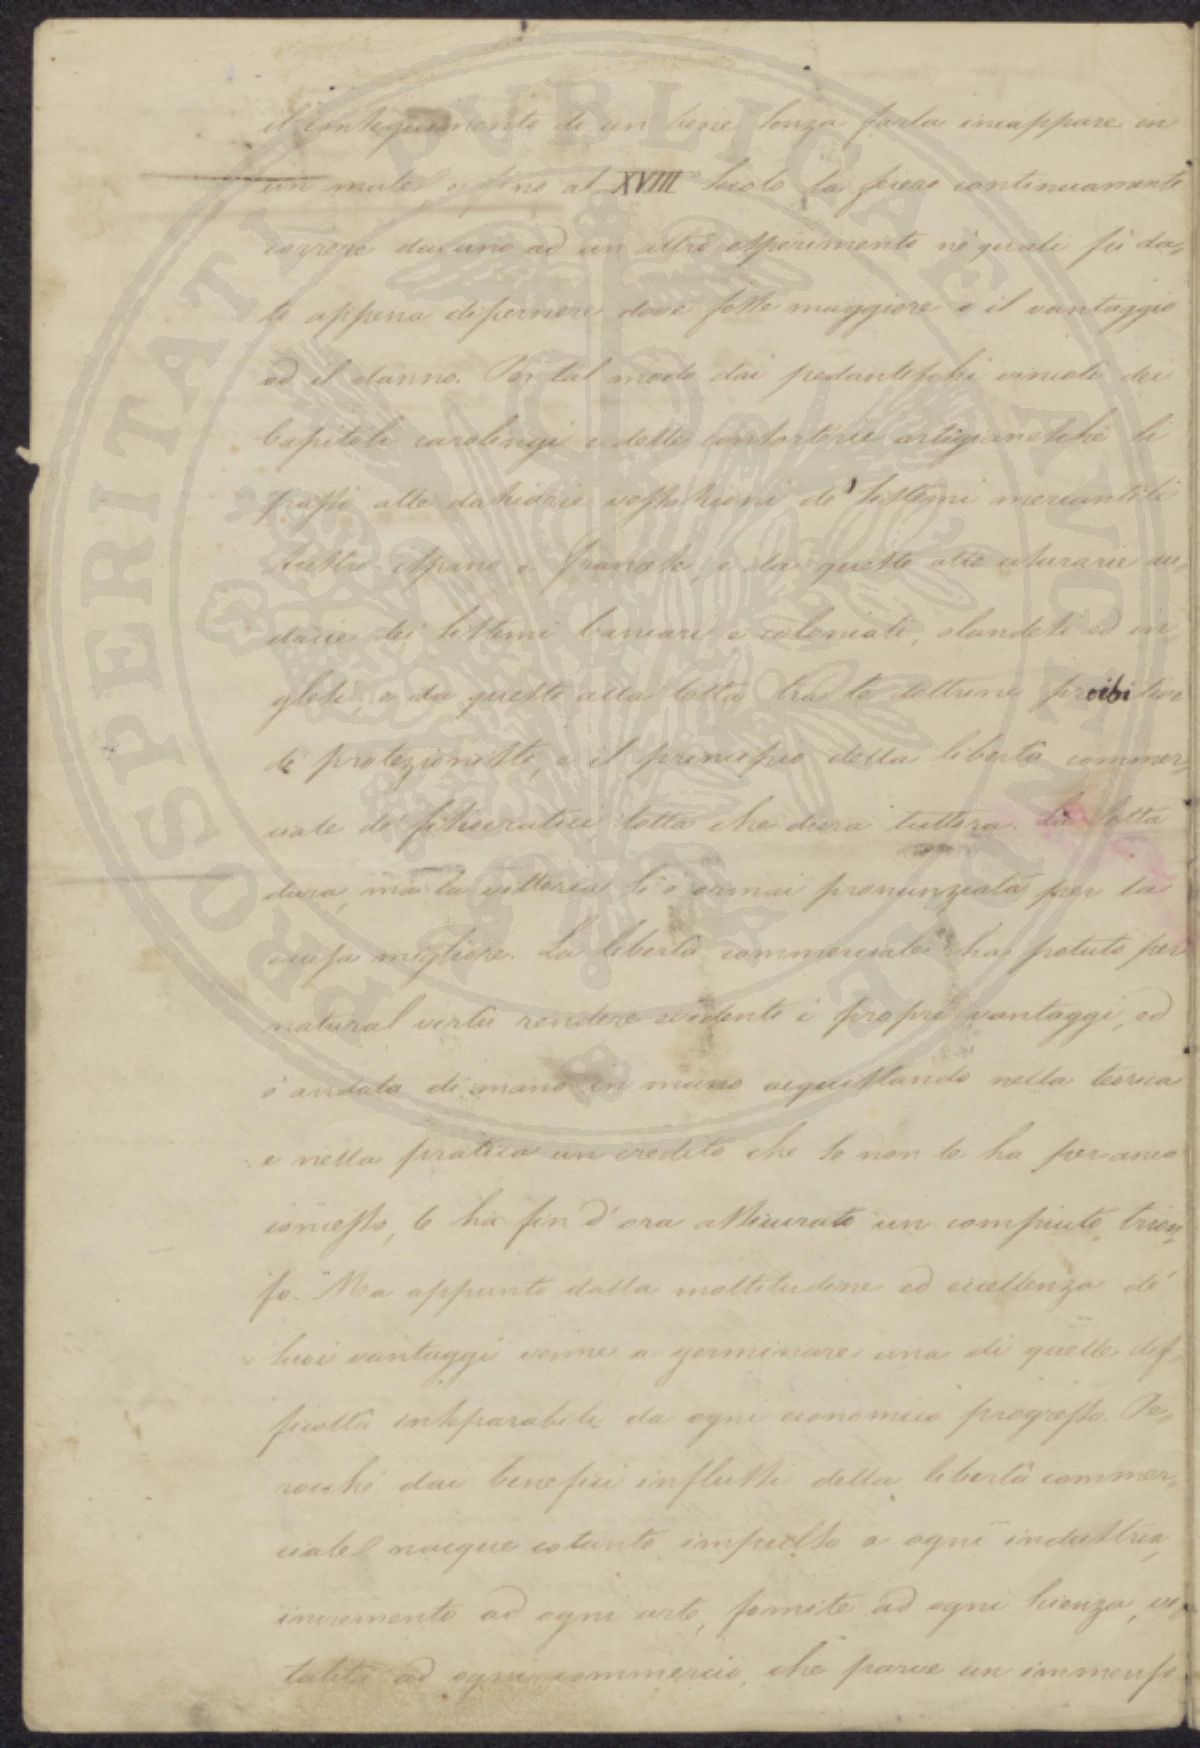 il conseguimento di un bene senza farla incappare in
un male, e fino al XVIII° secolo la fecero continuamente
correre da uno ad un altro esperimento ne' quali fù da-
to appena discernere dove fosse maggiore o il vantaggio
od il danno. Per tal modo dai pedanteschi vincoli dei
Capitoli carolingi e delle consorterie artigianesche si
passò alle daziarie vessazioni de' sistemi mercantili
Austro-ispano e francese, e da queste alle usurarie au-
dacie dei sistemi bancari e coloniali, olandesi ed in-
glesi, e da queste alla lotta tra le dottrine proibitive
e protezioniste, e il principio della libertà commer-
ciale de' fisiocratici lotta che dura tuttora. La lotta
dura, ma la vittoria si è ormai pronunziata per la
causa migliore. La libertà commerciale ha potuto per
natural virtù rendere evidenti i propri vantaggi, ed
è andata di mano in mano acquistando nella teorica
e nella pratica un credito che se non le ha per anco
concesso, le ha fin d'ora assicurato un compiuto trion-
fo. Ma appunto dalla moltitudine ed eccellenza de'
suoi vantaggi venne a germinare una di quelle dif-
ficoltà inseparabili da ogni economico progresso. Pe-
rocché dai benefici influssi della libertà commer-
ciale nacque cotanto impulso a ogni industria,
incremento ad ogni arte, fomite ad ogni scienza, vi-
talità ad ogni commercio, che parve un immenso
PROSPERITATI PVBLICAE AVGENDAE